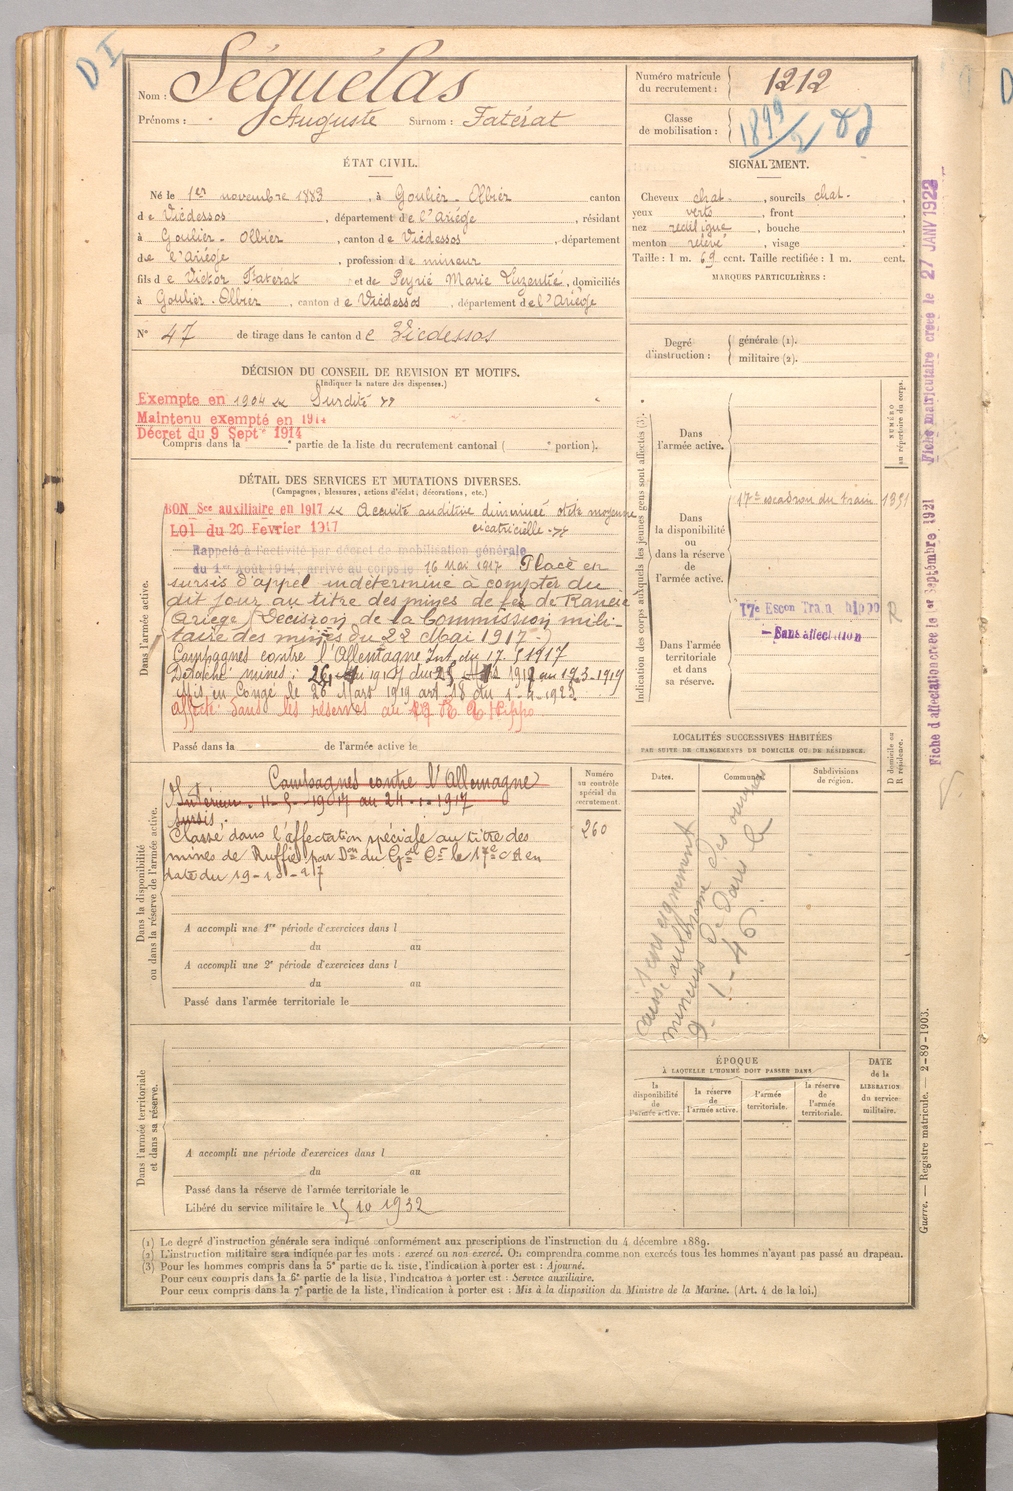 DI
Nom : Séguélas
Prénoms : Auguste Surnom : Fatérat
Numéro matricule du recrutement : 1212
Classe de mobilisation : 1899/2
ÉTAT CIVIL.
Né le 1er novembre 1883, à Goulier-Olbier canton
de Vicdessos, département de l'Ariège, résidant
à Goulier-Olbier, canton de Vicdessos, département
de l'Ariège, profession de mineur
fils de Victor Fatérat et de Peyrié Marie, domiciliés
à Goulier-Olbier, canton de Vicdessos, département de l'Ariège
N° 47 de tirage dans le canton de Vicdessos
SIGNALEMENT.
Cheveux chat., sourcils chat.,
yeux verts, front ,
nez rectiligne, bouche ,
menton relevé, visage .
Taille : 1 m. 69 cent. Taille rectifiée : 1 m. cent.
MARQUES PARTICULIÈRES :
Degré d'instruction : générale (1).
militaire (2).
DÉCISION DU CONSEIL DE REVISION ET MOTIFS.
(Indiquer la nature des dispenses.)
Exempté en 1904 Surdité
Maintenu exempté en 1914
Décret du 9 Septre 1914
Compris dans la e partie de la liste du recrutement cantonal ( e portion).
DÉTAIL DES SERVICES ET MUTATIONS DIVERSES.
(Campagnes, blessures, actions d'éclat, décorations, etc.)
Dans l'armée active.
BON. Sce auxiliaire en 1917 Acuité auditive diminuée otite moyenne
LOI du 20 Février 1917 cicatricielle
Rappelé à l'activité par décret de mobilisation générale
du 1er Août 1914, arrivé au corps le 16 Mai 1917 Placé en
sursis d'appel indéterminé à compter du
dit jour au titre des mines de fer de Rancié
Ariège (Décision de la Commission mili-
taire des mines du 22 Mai 1917.)
Campagnes contre l'Allemagne Int du 17.5 1917
Détaché mines :
Mis en Congé le 26 Mars 1919
Affecté dans les réserves au
Passé dans la de l'armée active le
Dans la disponibilité ou dans la réserve de l'armée active.
Campagnes contre l'Allemagne
Intérieur
sursis.
Classé dans l'affectation spéciale au titre des
mines de Ruffié par Don du Gal Ct le 17e CA en
date du
A accompli une 1re période d'exercices dans l
du au
A accompli une 2e période d'exercices dans l
du au
Passé dans l'armée territoriale le
Numéro au contrôle spécial du recrutement.
260
Dans l'armée territoriale et dans sa réserve.
A accompli une période d'exercices dans l
du au
Passé dans la réserve de l'armée territoriale le
Libéré du service militaire le 15 10 1932
Indication des corps auxquels les jeunes gens sont affectés (3).
NUMÉRO au répertoire du corps.
Dans l'armée active.
Dans la disponibilité ou dans la réserve de l'armée active.
17e escadron du train
Dans l'armée territoriale et dans sa réserve.
17e Escon Train hippo
Sans affectation
LOCALITÉS SUCCESSIVES HABITÉES
PAR SUITE DE CHANGEMENTS DE DOMICILE OU DE RÉSIDENCE.
Dates. Communes. Subdivisions de région. D domicile ou R résidence.
renseignement
caisse autonome des ouvriers
mineurs de Paris le
9-1-46
ÉPOQUE
À LAQUELLE L'HOMME DOIT PASSER DANS
la disponibilité de l'armée active. la réserve de l'armée active. l'armée territoriale. la réserve de l'armée territoriale.
DATE de la LIBÉRATION du service militaire.
(1) Le degré d'instruction générale sera indiqué conformément aux prescriptions de l'instruction du 4 décembre 1889.
(2) L'instruction militaire sera indiquée par les mots : exercé ou non exercé. On comprendra comme non exercés tous les hommes n'ayant pas passé au drapeau.
(3) Pour les hommes compris dans la 5e partie de la liste, l'indication à porter est : Ajourné.
Pour ceux compris dans la 6e partie de la liste, l'indication à porter est : Service auxiliaire.
Pour ceux compris dans la 7e partie de la liste, l'indication à porter est : Mis à la disposition du Ministre de la Marine. (Art. 4 de la loi.)
Fiche matriculaire créée le 27 JANV 1922
Fiche d'affectation créée le 1er Septembre 1921
Guerre. — Registre matricule. — 2-89-1903.